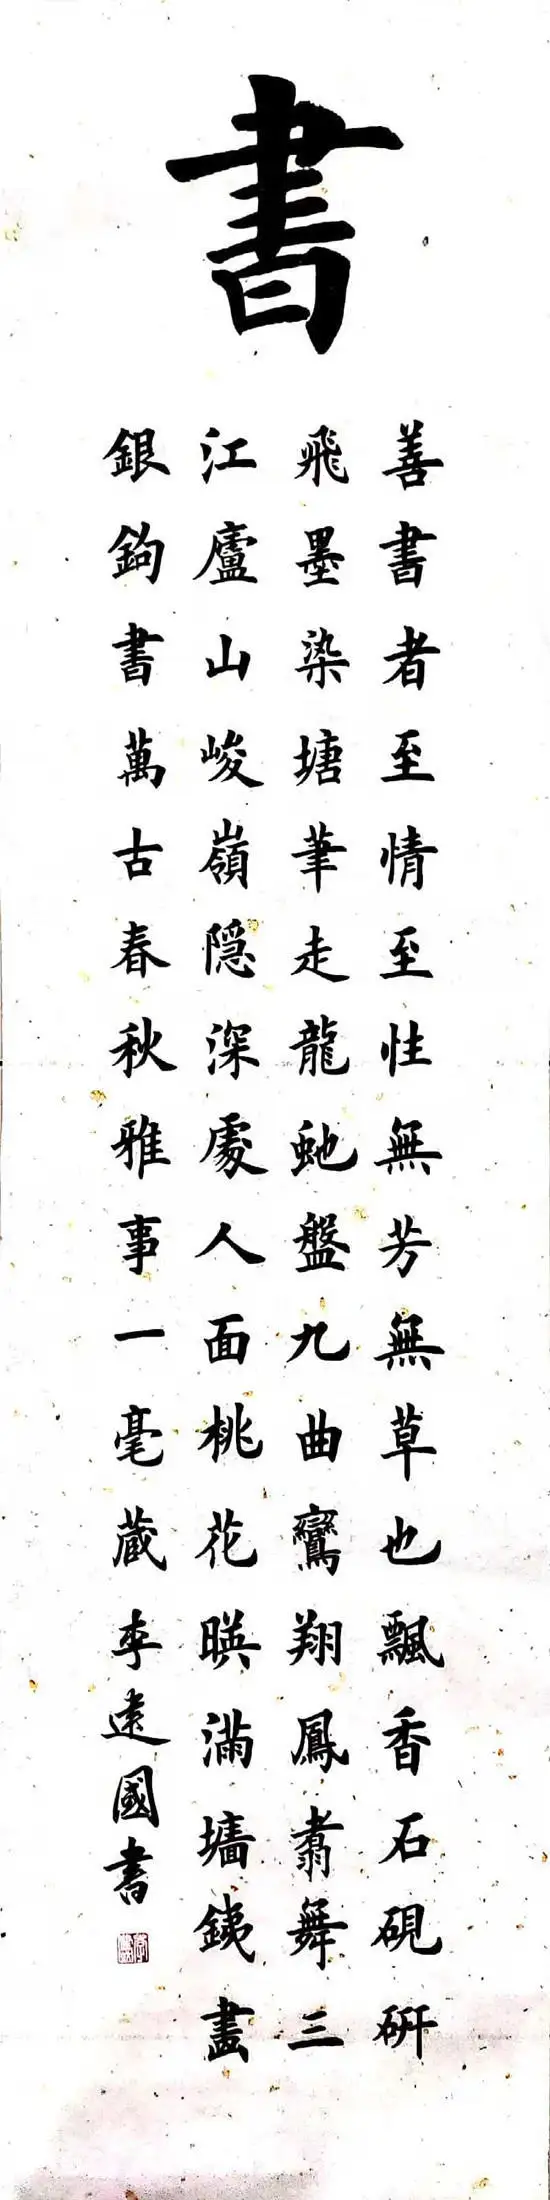 書
善書者至情至性無芳無草也飄香石硯研
飛墨染塘筆走龍虵盤九曲鸞翔鳳翥舞三
江廬山峻嶺隐深處人面桃花暎滿墻銕畫
銀鉤書萬古春秋雅事一毫蔵李遠國書